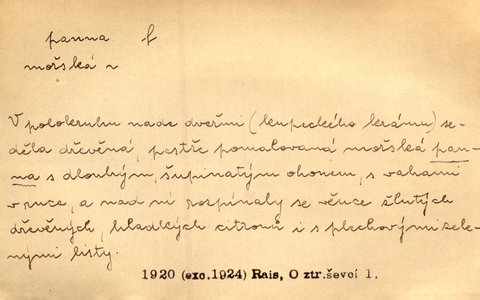 panna f
mořská v
V polokruhu nade dveřmi (kupeckého krámu) se-
děla dřevěná, pestře pomalovaná mořská pan-
na s dlouhým, šupinatým ohonem, s vahami
v ruce, a nad ní rozpínaly se věnce žlutých
dřevěných, hladkých citronů i s plechovými zele-
nými listy.
1920 (exc.1924) Rais, O ztr.ševci 1.